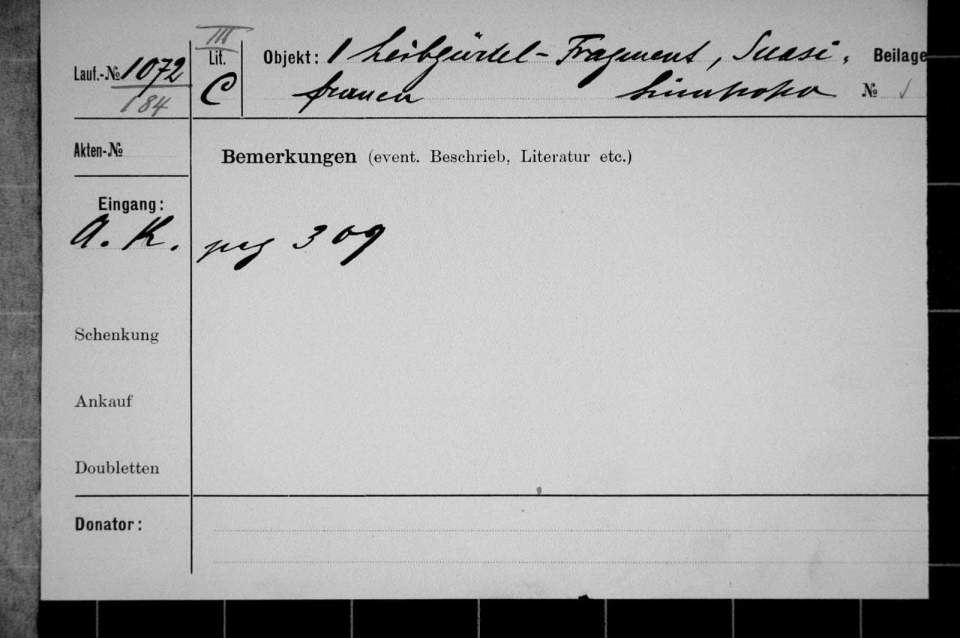 III
Lauf.-№ 1072 Lit. Objekt: 1 Leibgürtel-Fragment, Suasi, Beilage
184 C frauen Limpopo № ✓
Akten-№
Bemerkungen (event. Beschrieb, Literatur etc.)
Eingang:
A. K. pag 309
Schenkung
Ankauf
Doubletten
Donator: